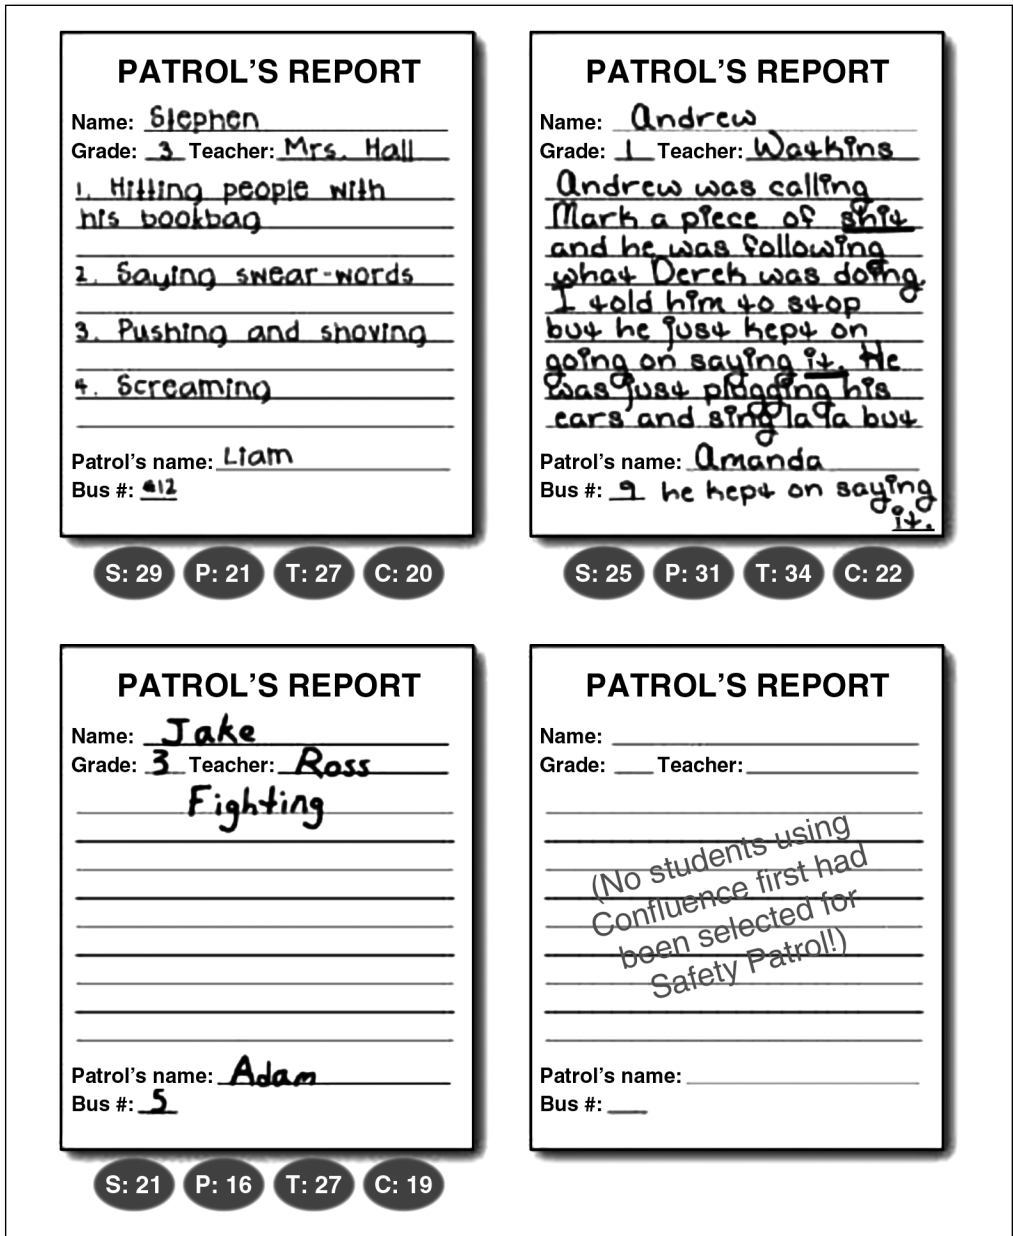 PATROL’S REPORT
Name: Stephen
Grade: 3 Teacher: Mrs. Hall
1. Hitting people with
his bookbag
2. Saying swear-words
3. Pushing and shoving
4. Screaming
Patrol’s name: Liam
Bus #: #12
S: 29 P: 21 T: 27 C: 20
PATROL’S REPORT
Name: Andrew
Grade: 1 Teacher: Watkins
Andrew was calling
Mark a piece of shit
and he was following
what Derek was doing.
I told him to stop
but he just kept on
going on saying it. He
was just plugging his
ears and sing la la but
Patrol’s name: Amanda
Bus #: 9 he kept on saying
it.
S: 25 P: 31 T: 34 C: 22
PATROL’S REPORT
Name: Jake
Grade: 3 Teacher: Ross
Fighting
Patrol’s name: Adam
Bus #: 5
S: 21 P: 16 T: 27 C: 19
PATROL’S REPORT
Name:
Grade: Teacher:
(No students using
Confluence first had
been selected for
Safety Patrol!)
Patrol’s name:
Bus #: